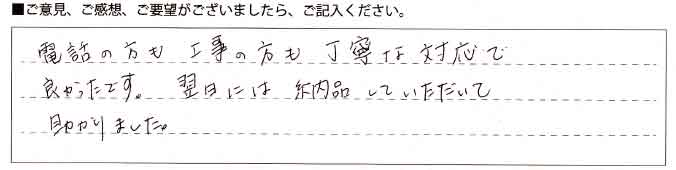 ■ご意見、ご感想、ご要望がございましたら、ご記入ください。
電話の方も 工事の方も 丁寧な対応で
良かったです。 翌日には 納品していただいて
助かりました。